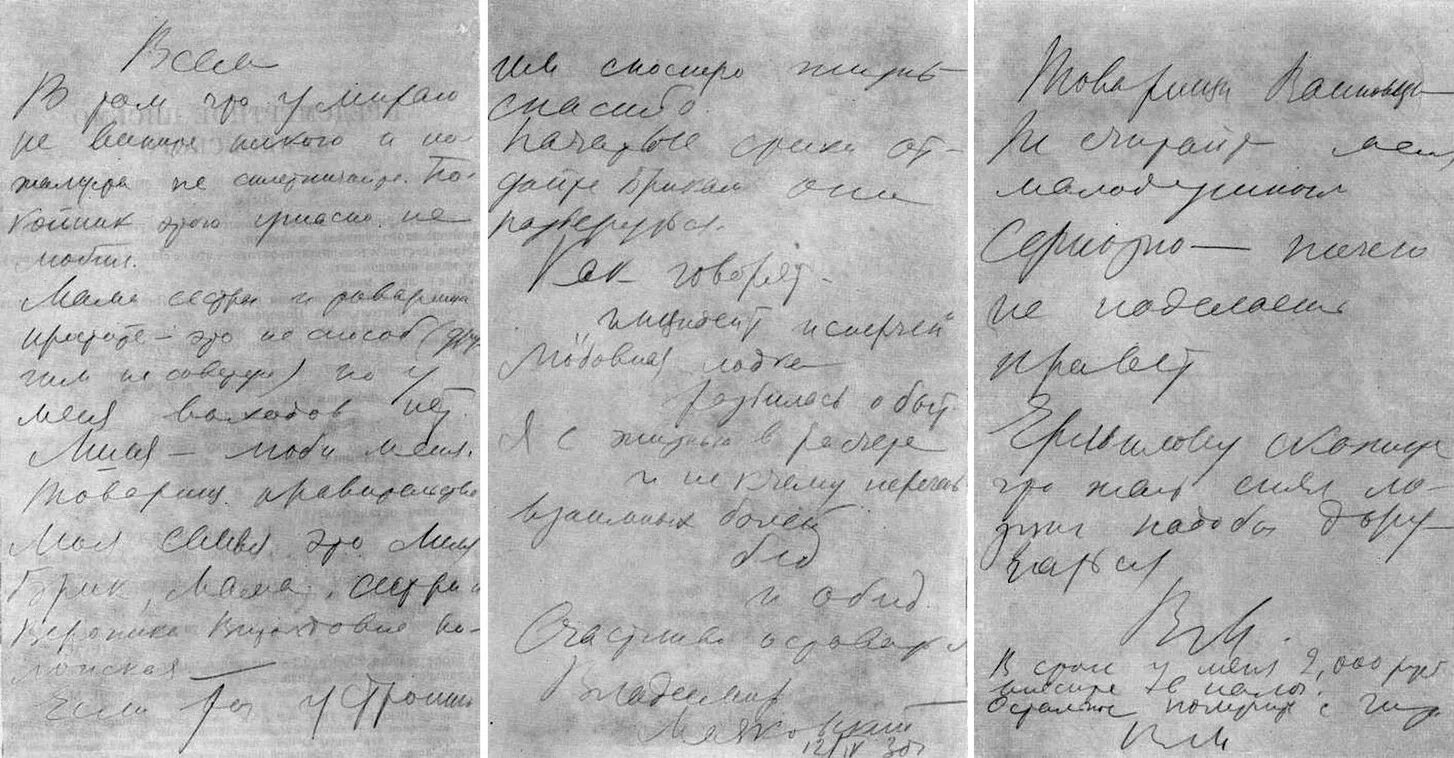 Всем
В том что умираю
не вините никого и по-
жалуйста не сплетничайте. По-
койник этого ужасно не
любил.
Мама сестры и товарищи
простите – это не способ (дру
гим не советую) но у
меня выходов нет.
Лиля – люби меня.
Товарищ правительство
Моя семья это Лиля
Брик, мама, сестры и
Вероника Витольдовна По-
лонская —
Если ты устроишь
им сносную жизнь –
спасибо.
Начатые стихи от-
дайте Брикам они
разберутся.
Как говорят –
"инцидент исперчен"
Любовная лодка
разбилась о быт.
Я с жизнью в расчете
и не к чему перечень
взаимных болей
бед
и обид.
Счастливо оставаться
Владимир
Маяковский
12/IV 30
Товарищи Вапповцы –
Не считайте меня
малодушным
Сериозно — ничего
не поделаешь
привет
Ермилову скажите
что жаль снял ло-
зунг надо бы дору-
гаться
В.М.
В столе у меня 2,000 руб
внесите в налог.
Остальное получите с Гиза
В.М